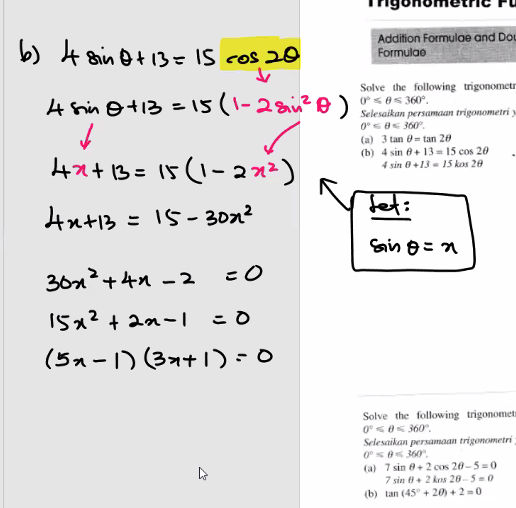 b) 4 sin θ + 13 = 15 cos 2θ
4 sin θ + 13 = 15 (1 - 2 sin² θ)
4x + 13 = 15 (1 - 2x²)
4x + 13 = 15 - 30x²
30x² + 4x - 2 = 0
15x² + 2x - 1 = 0
(5x - 1) (3x + 1) = 0
Let:
sin θ = x
Trigonometric Fu
Addition Formulae and Dou
Formulae
Solve the following trigonometr
0° ≤ θ ≤ 360°.
Selesaikan persamaan trigonometri y
0° ≤ θ ≤ 360°.
(a) 3 tan θ = tan 2θ
(b) 4 sin θ + 13 = 15 cos 2θ
4 sin θ + 13 = 15 kos 2θ
Solve the following trigonomet
0° ≤ θ ≤ 360°.
Selesaikan persamaan trigonometri
0° ≤ θ ≤ 360°.
(a) 7 sin θ + 2 cos 2θ – 5 = 0
7 sin θ + 2 kos 2θ – 5 = 0
(b) tan (45° + 2θ) + 2 = 0